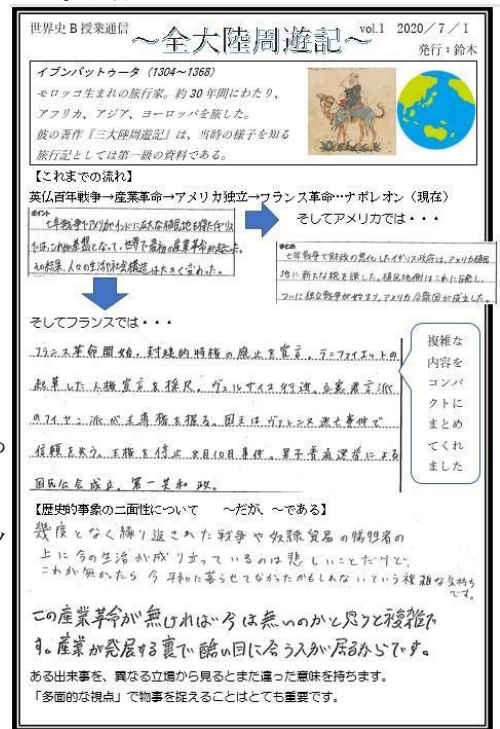 世界史B授業通信
～全大陸周遊記～
vol.1 2020/7/1
発行:鈴木
イブンバットゥータ(1304～1368)
モロッコ生まれの旅行家。約30年間にわたり、
アフリカ、アジア、ヨーロッパを旅した。
彼の著作『三大陸周遊記』は、当時の様子を知る
旅行記としては第一級の資料である。
【これまでの流れ】
英仏百年戦争→産業革命→アメリカ独立→フランス革命…ナポレオン(現在)
ポイント
七年戦争でアメリカやインドに広大な植民地を得たイギリス
では、これが基盤となって、世界で最初の産業革命が起こった。
その結果、人々の生活や社会構造は大きく変わった。
そしてアメリカでは・・・
まとめ
七年戦争で財政の悪化したイギリス政府は、アメリカ植民
地に新たな税を課した。植民地側はこれに反発し、
ついに独立戦争が始まり、アメリカ合衆国が成立した。
そしてフランスでは・・・
フランス革命開始。封建的特権の廃止を宣言。ラ=ファイエットの
起草した人権宣言を採択。ヴェルサイユ行進。立憲君主派
のフイヤン派が主導権を握る。国王はヴァレンヌ逃亡事件で
信頼を失う。王権を停止 8月10日事件。男子普通選挙による
国民公会成立。第一共和政。
複雑な
内容を
コンパ
クトに
まとめ
てくれ
ました
【歴史的事象の二面性について ～だが、～である】
幾度となく繰り返された戦争や奴隷貿易の犠牲者の
上に今の生活が成り立っているのは悲しいことだけど、
これが無かったら今平和に暮らせてなかったかもしれないという複雑な気持ち
です。
この産業革命が無ければ今は無いのかと思うと複雑で
す。産業が発展する裏で酷い目に合う人が居るからです。
ある出来事を、異なる立場から見るとまた違った意味を持ちます。
「多面的な視点」で物事を捉えることはとても重要です。